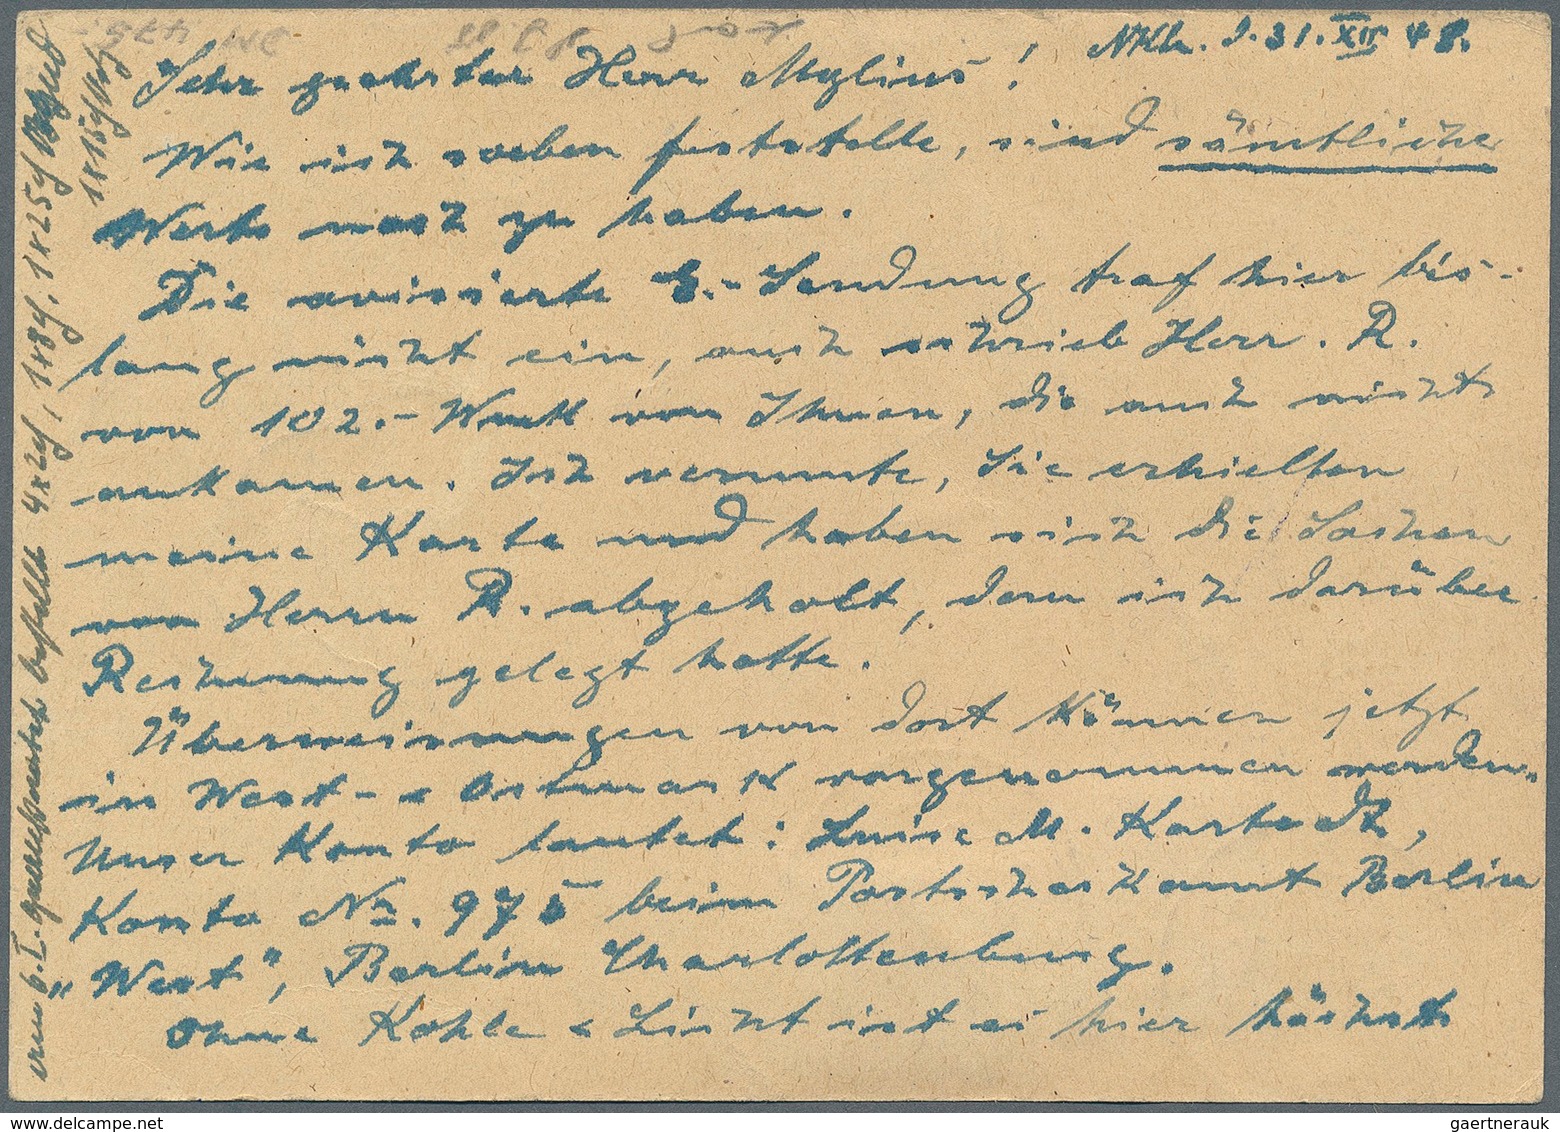 NKln. d. 31. XII 48.
Sehr geehrter Herr Mylius!
Wie ich soeben feststelle, sind sämtliche
Werte noch zu haben.
Die avisierte E.-Sendung traf hier bis-
lang nicht ein, auch schrieb Herr. R.
von 102.- Wmk von Ihnen, die auch nicht
ankamen. Ich vermute, Sie erhielten
meine Karte und haben sich die Sachen
von Herrn R. abgeholt, denn ich darüber
Rechnung gelegt hatte.
Überweisungen von dort können jetzt
in West- & Ostmark vorgenommen werden.
Unser Konto lautet: Luise M. Karstedt,
Konto No. 975 beim Postscheckamt Berlin
„West", Berlin Charlottenburg.
Ohne Kohle & Licht ist es hier höchst
am 6.I. bestellt 4x24, 1x84, 1x254
1x164
gaertnerauk